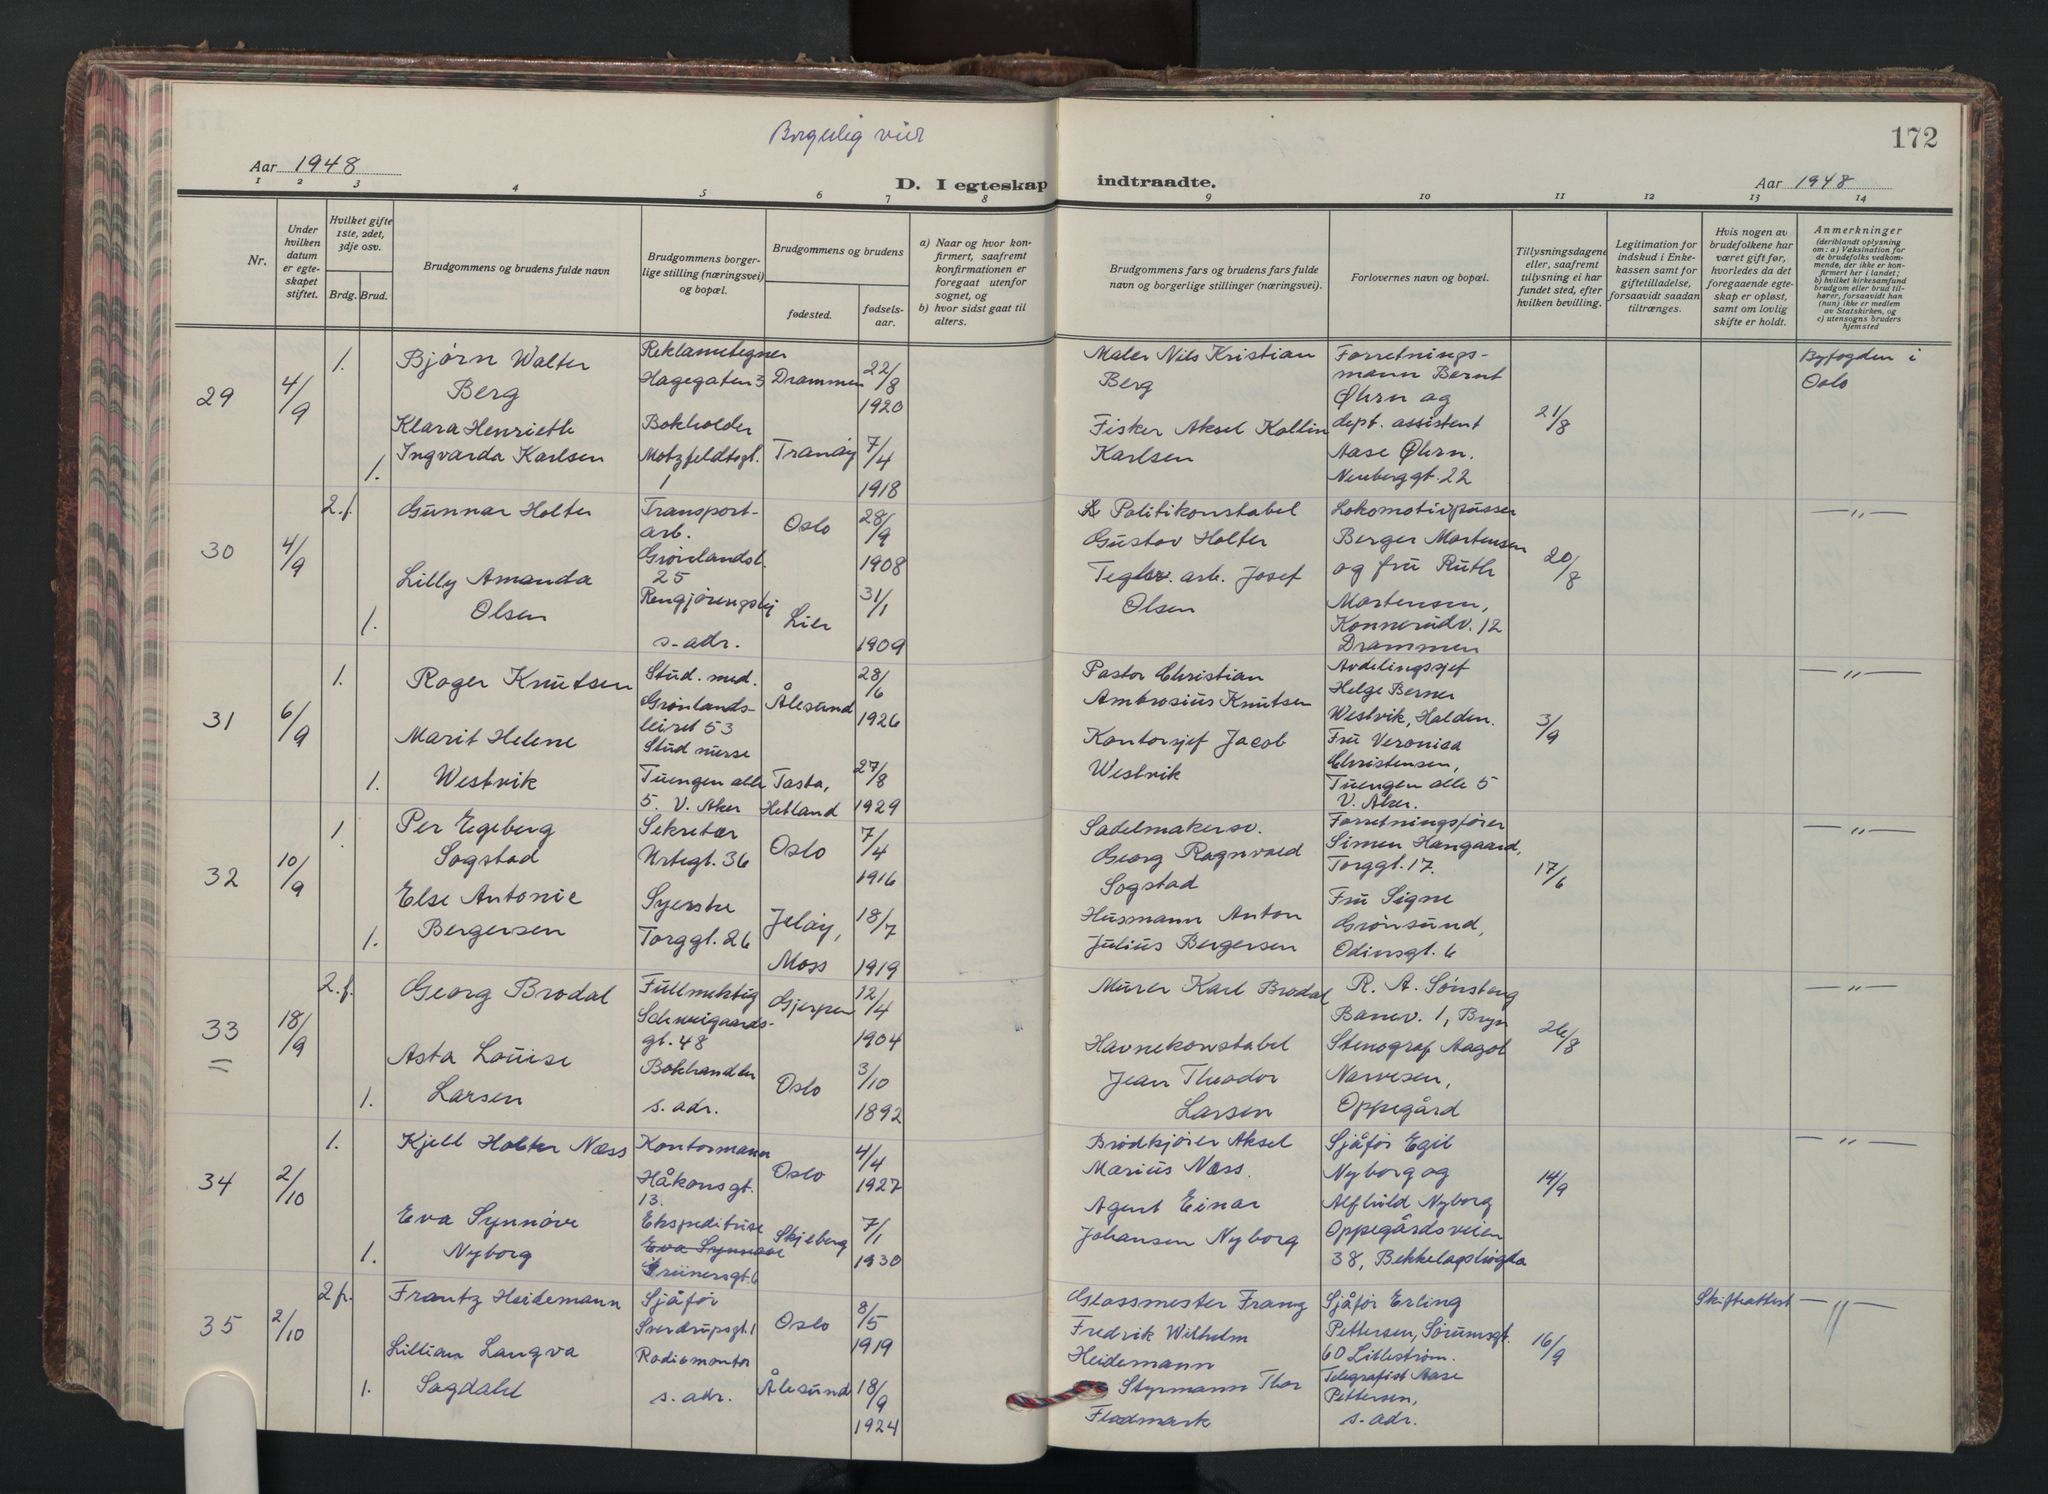 Borgerlig viet
172
Aar 1948
D. I egteskap indtraadte.
Aar 1948
1 2 3 4 5 6 7 8 9 10 11 12 13 14
Nr.
Under hvilken datum er egteskapet stiftet.
Hvilket gifte 1ste, 2det, 3dje osv.
Brdg. Brud.
Brudgommens og brudens fulde navn
Brudgommens borgerlige stilling (næringsvei) og bopæl.
Brudgommens og brudens
fødested.
fødselsaar.
a) Naar og hvor konfirmert, saafremt konfirmationen er foregaat utenfor sognet, og
b) hvor sidst gaat til alters.
Brudgommens fars og brudens fars fulde navn og borgerlige stillinger (næringsvei).
Forlovernes navn og bopæl.
Tillysningsdagene eller, saafremt tillysning ei har fundet sted, efter hvilken bevilling.
Legitimation for indskud i Enkekassen samt for giftetilladelse, forsaavidt saadan tiltrænges.
Hvis nogen av brudefolkene har været gift før, hvorledes da det foregaaende egteskap er opløst, samt om lovlig skifte er holdt.
Anmerkninger
(deriblandt oplysning om: a) Vaksination for de brudefolks vedkommende, der ikke er konfirmert her i landet; b) hvilket kirkesamfund brudgom eller brud tilhører, forsaavidt han (hun) ikke er medlem av Statskirken, og c) utensogns bruders hjemsted
29
4/9
1.
Bjørn Walter
Berg
Reklametegner
Hagegaten 3
Drammen
22/8
1920
Klara Henriette
Ingvarda Karlsen
1.
Bokholder
Motzfeldtsgt.
1
Tranøy
7/4
1918
Maler Nils Kristian
Berg
Fisker Aksel Kollin
Karlsen
Forretnings-
mann Bernt
Øhrn og
dept. assistent
Aase Øhrn.
Neuberggt. 22
21/8
Byfogden i
Oslo
30
4/9
2.f.
Gunnar Holter
Transport-
arb.
Grønlandsl.
25
Oslo
28/9
1908
Lilly Amanda
Olsen
1.
Rengjøringshj
s. adr.
Lier
31/1
1909
Politikonstabel
Gustav Holter
Teglv. arb. Josef
Olsen
Lokomotivpusser
Berger Mortensen
og fru Ruth
Mortensen,
Konnerudv. 12
Drammen
20/8
—"—
31
6/9
1.
Roger Knutsen
Stud. med.
Grønlands-
leiret 53
Ålesund
28/6
1926
Marit Helene
Westvik
1.
Stud nurse
Tuengen alle
5. V. Aker
Tasta,
Hetland
27/8
1929
Pastor Christian
Ambrosius Knutsen
Kontorsjef Jacob
Westvik
Avdelingssjef
Helge Berner
Westvik, Halden.
Fru Veronica
Christensen,
Tuengen alle 5
V. Aker.
3/9
—"—
32
10/9
1.
Per Egeberg
Sogstad
Sekretær
Urtegt. 36
Oslo
7/4
1916
Else Antonie
Bergersen
1.
Syerske
Torggt. 26
Jeløy,
Moss
18/7
1919
Sadelmakersv.
Georg Ragnvald
Sogstad
Husmann Anton
Julius Bergersen
Forretningsfører
Simen Haugaard,
Torggt. 17.
Fru Signe
Grønsund,
Odinsgt. 6
17/6
—"—
33
18/9
2.f.
Georg Brodal
Fullmektig
Schweigaards-
gt. 48
Gjerpen
12/4
1904
Asta Louise
Larsen
1.
Bokhandler
s. adr.
Oslo
3/10
1892
Murer Karl Brodal
Havnekonstabel
Jean Theodor
Larsen
R. A. Sønsberg
Banev. 1, Bryn
Stenograf Aagot
Narvesen,
Oppegård
26/8
—"—
34
2/10
1.
Kjell Holter Næss
Kontormann
Håkonsgt.
13.
Oslo
4/4
1927
Eva Synnøve
Nyborg
1.
Ekspeditrise
Eva Synnøve
Grünersgt. 6
Skjeberg
7/1
1930
Brødkjører Aksel
Marius Næss.
Agent Einar
Johansen Nyborg
Sjåfør Egil
Nyborg og
Alfhild Nyborg
Oppegårdsveien
38, Bekkelagshøgda
14/9
—"—
35
2/10
2 f.
Frantz Heidemann
Sjåfør
Sverdrupsgt. 1
Oslo
8/5
1919
Lillian Langva
Sogdahl
1.
Radiomontør
s. adr.
Ålesund
18/9
1924
Glassmester Franz
Fredrik Wilhelm
Heidemann
Styrmann Thor
Flodmark
Sjåfør Erling
Pettersen, Sørumsgt.
60 Lillestrøm.
Telegrafist Aase
Pettersen,
s. adr.
16/9
Skifteattest
—"—